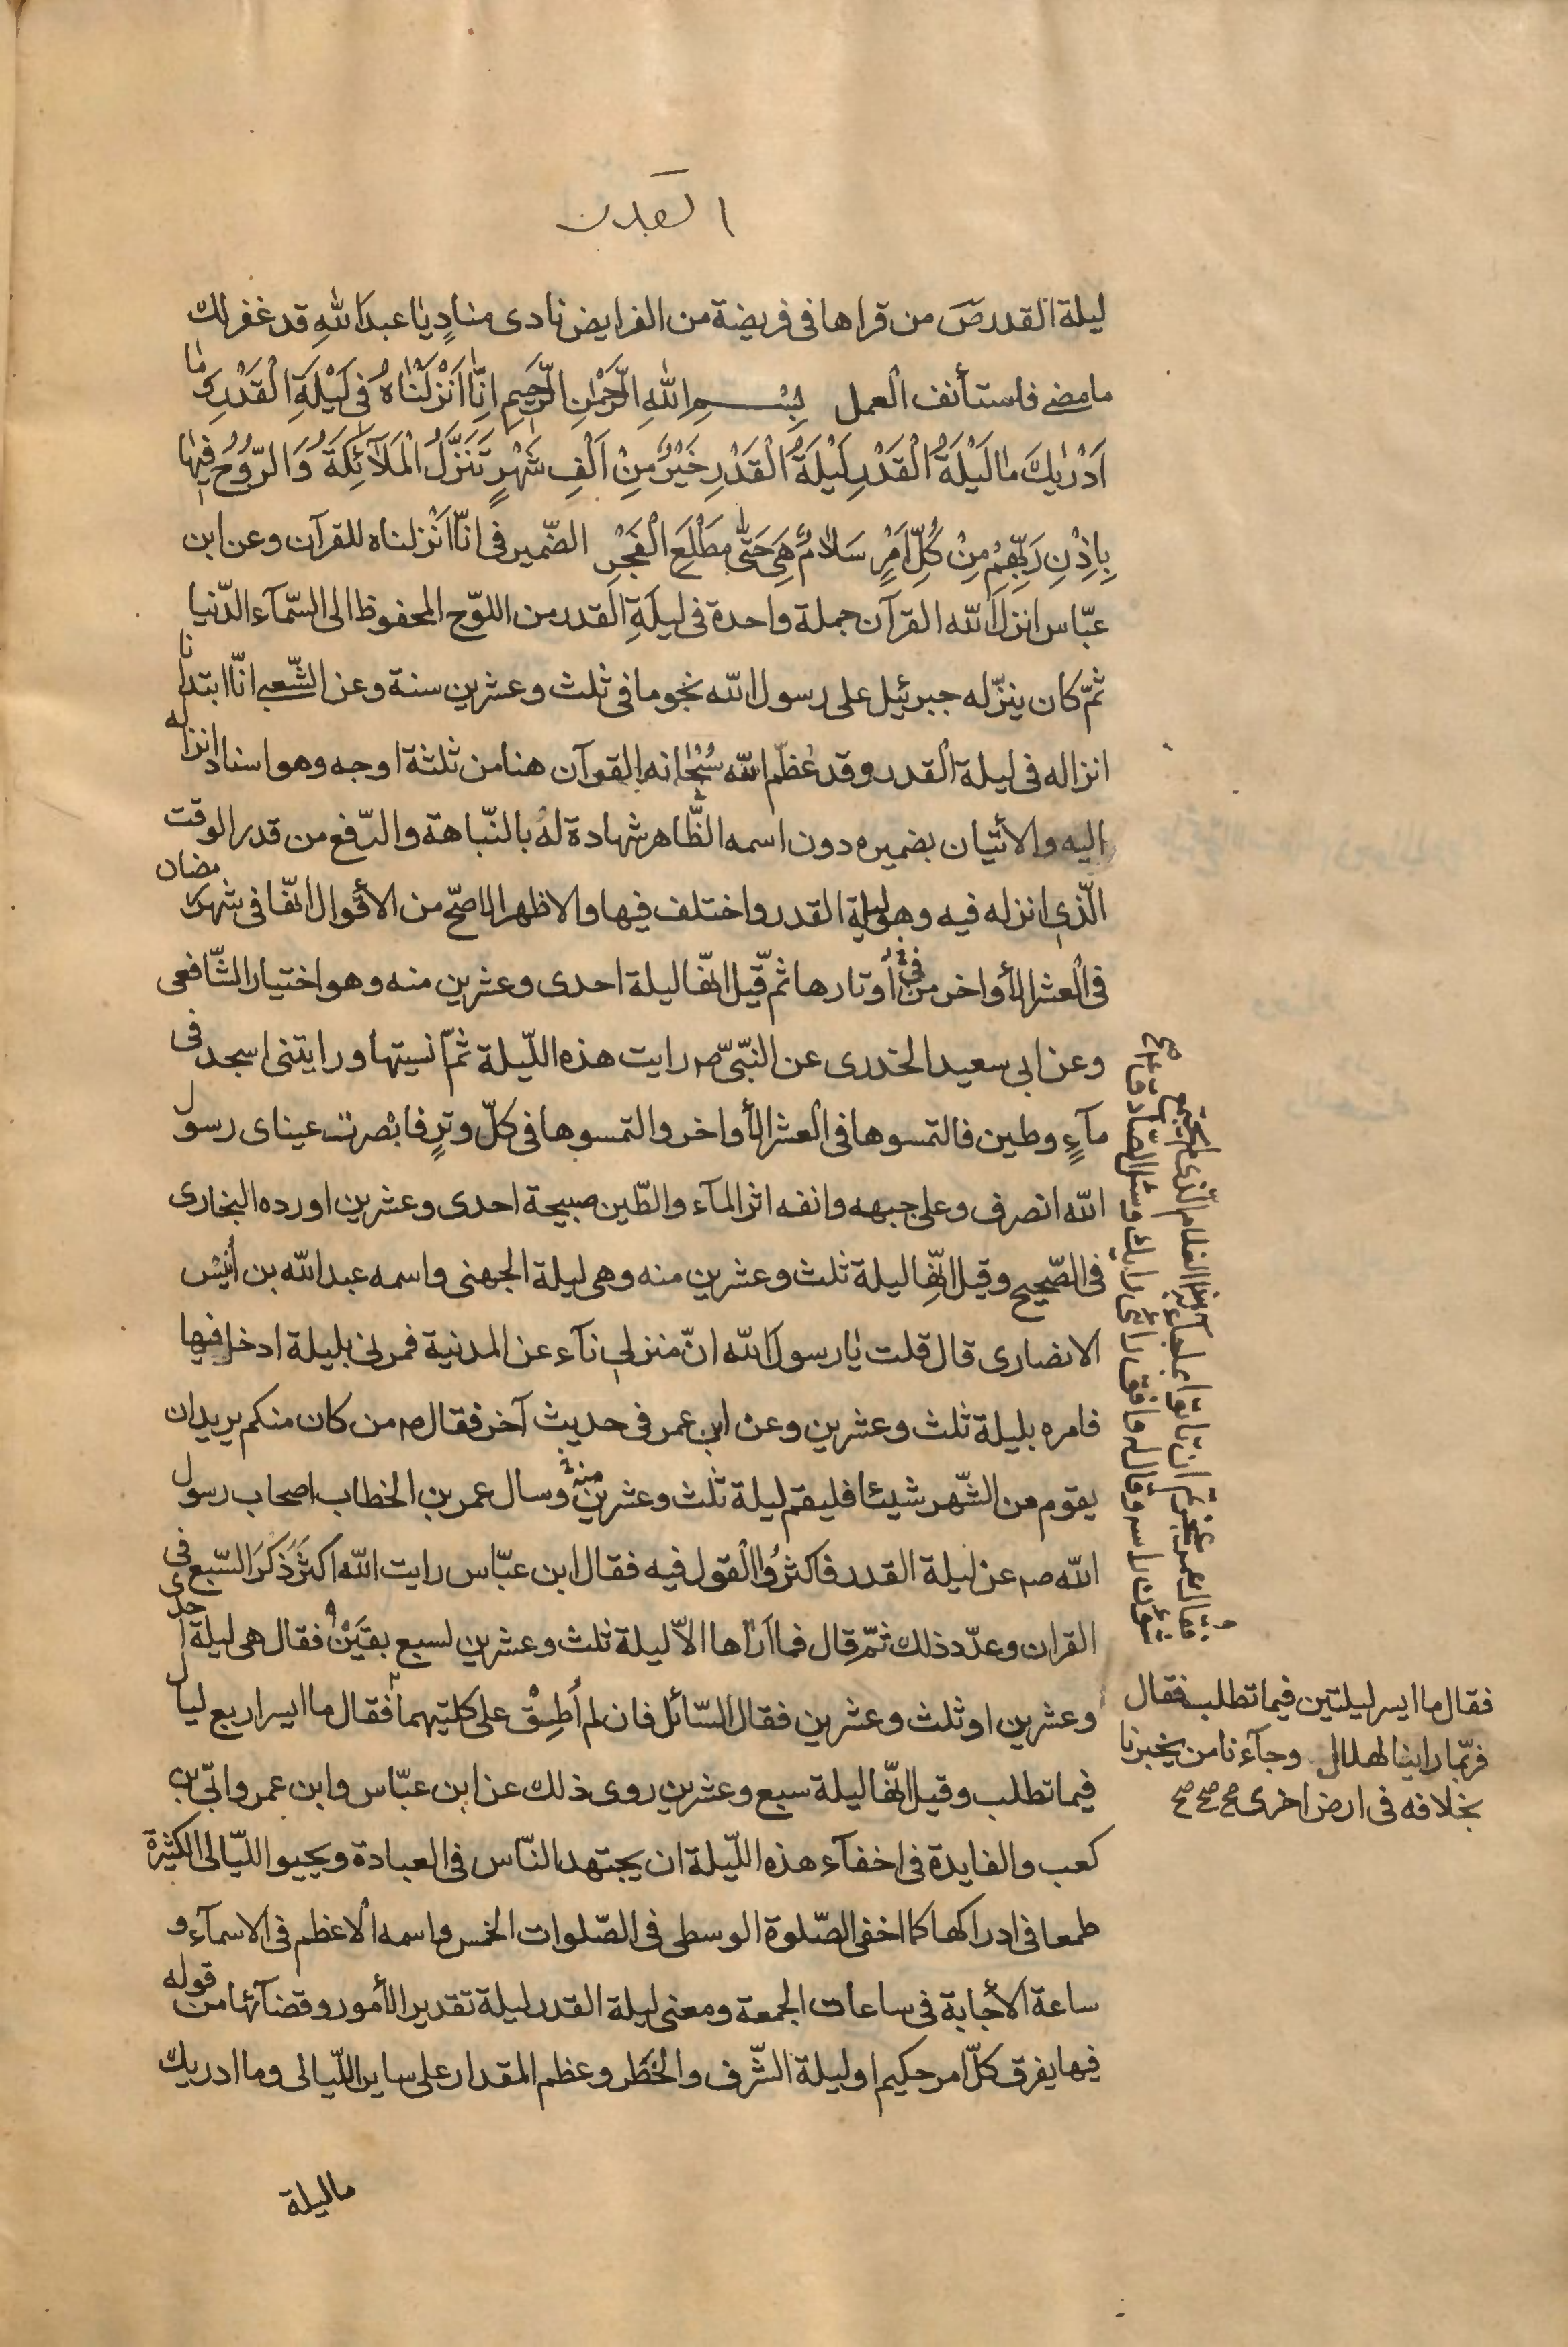 القدر
ليلة القدر ص من قراها فى فريضة من الفرايض نادى منادٍ يا عبد الله قد غفر لك
ما مضى فاستأنف العمل بِسْمِ اللهِ الرَّحْمٰنِ الرَّحِيمِ اِنَّا اَنْزَلْنَاهُ فِى لَيْلَةِ الْقَدْرِ وَمَا
اَدْرٰيكَ مَا لَيْلَةُ الْقَدْرِ لَيْلَةُ الْقَدْرِ خَيْرٌ مِنْ اَلْفِ شَهْرٍ تَنَزَّلُ الْمَلَآئِكَةُ وَالرُّوحُ فِيهَا
بِاِذْنِ رَبِّهِمْ مِنْ كُلِّ اَمْرٍ سَلَامٌ هِىَ حَتّٰى مَطْلَعِ الْفَجْرِ الضّمير فى انّا انزلناه للقرآن وعن ابن
عبّاس انزل الله القرآن جملة واحدة فى ليلة القدر من اللوح المحفوظ الى السّمآء الدّنيا
ثمّ كان ينزّله جبرئيل على رسول الله نجوما فى ثلث وعشرين سنة وعن الشّعبى انّا ابتدانا
انزاله فى ليلة القدر وقد عظّم الله سُبْحانه القرآن هنا من ثلثة اوجه وهو اسناد انزاله
اليه والأتيان بضميره دون اسمه الظّاهر شهادة له بالنّباهة والرّفع من قدر الوقت
الّذى انزله فيه وهى ليلة القدر واختلف فيها والاظهر الاصحّ من الأقوال انّها فى شهر رمضان
فى العشر الأواخر من فى أوتارها ثمّ قيل انّها ليلة احدى وعشرين منه وهو اختيار الشّافعى
وعن ابى سعيد الخدرى عن النبّى ص رايت هذه اللّيلة ثمّ انسيتها ورايتنى اسجد فى
مآءٍ وطين فالتمسوها فى العشر الأواخر والتمسوها فى كلّ وترٍ فابْصرت عيناى رسول
الله انصرف وعلى جبهه وانفه اثر المآء والطّين صبيحة احدى وعشرين اورده البخارى
فى الصّحيح وقيل انّها ليلة ثلث وعشرين منه وهى ليلة الجهنى واسمه عبد الله بن أنيْس
الانصارى قال قلت يا رسول الله انّ منزلى نآء عن المدنية فمرنى بليلة ادخل فيها
فامره بليلة ثلث وعشرين وعن ابن عمر فى حديث آخر فقال ص من كان منكم يريد ان
يقوم من الشّهر شيئا فليقم ليلة ثلث وعشرين منه وسال عمر بن الخطاب اصحاب رسول
الله ص عن ليلة القدر فاكثرُوا القول فيه فقال ابن عبّاس رايت الله اكثَر ذكَر السّبع فى
القران وعدّد ذلك ثمّ قال فما اَرَاها الاّ ليلة ثلث وعشرين لسبع بقَيْن فقال هى ليلة احدى
وعشرين او ثلث وعشرين فقال السّائل فان لم أطِقْ على كلتيهما فقال ما ايسر اربع ليال
فيما تطلب وقيل انّها ليلة سبع وعشرين روى ذلك عن ابن عبّاس وابن عمر وابّى بن
كعب والفايدة فى اخفآء هذه اللّيلة ان يجتهد النّاس فى العبادة ويحيوا اللّيالى الكثيرة
طمعا فى ادراكها كما اخفى الصّلوة الوسطى فى الصّلوات الخمس واسمه الاعظم فى الاسمآء و
ساعة الأجابة فى ساعات الجمعة ومعنى ليلة القدر ليلة تقدير الأمور وقضآئها من قوله
فيها يفرق كلّ امر حكيم او ليلة الشّرف والخَطَر وعظم المقدار على ساير اللّيالى وما ادريك
ما ليلة
فقال عمر عجزتم ان تاتوا بما جآء به هذا الغلام الّذى لم يجتمع
شؤن راسه وقال له وافق رائى رايك وسئل الصّادق ع
فقال ما ايسر ليلتين فيما تطلب فقال
فربّما راينا الهلال وجآءنا من يخبرنا
بخلافه فى ارض اخرى صح صح صح